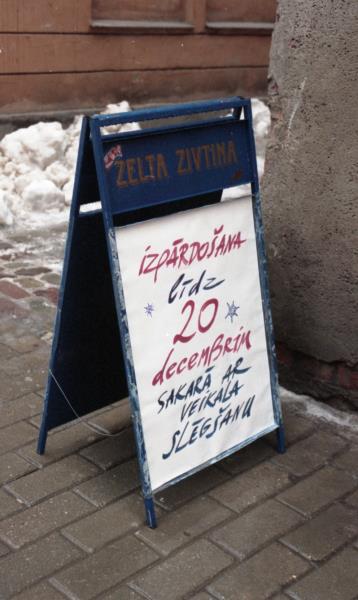 ZELTA ZIVTIŅA
izPĀRDOŠANA
līdz
20
decembrim
SAKARĀ AR
VEIKALA
SLĒGŠANU